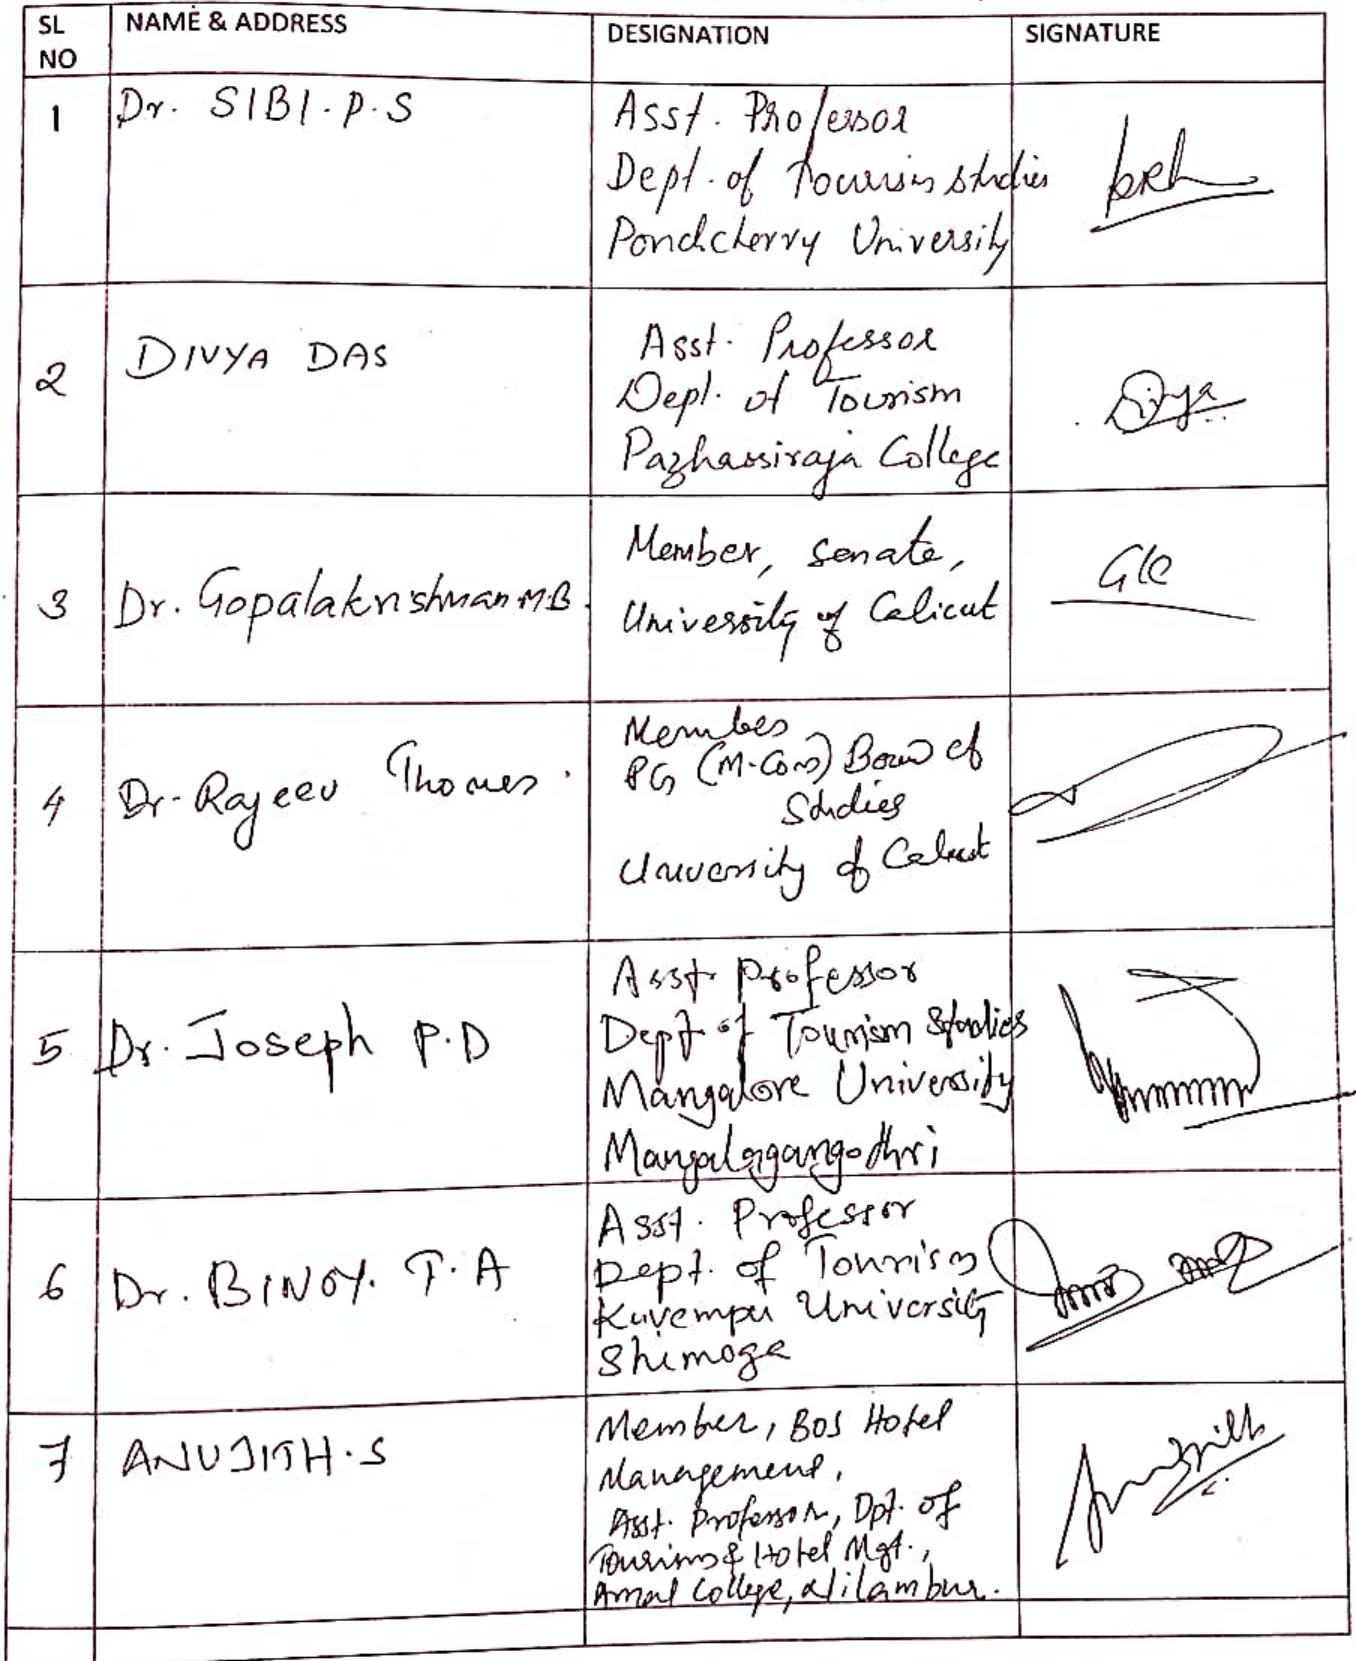 SL NO
NAME & ADDRESS
DESIGNATION
SIGNATURE
1
Dr. SIBI.P.S
Asst. Professor
Dept. of Tourism studies
Pondicherry University
2
DIVYA DAS
Asst. Professor
Dept. of Tourism
Pazhassiraja College
Divya
3
Dr. Gopalakrishnan M.B.
Member, Senate,
University of Calicut
4
Dr. Rajeev Thomas.
Member
PG (M.Com) Board of
Studies
University of Calicut
5
Dr. Joseph P.D
Asst. Professor
Dept of Tourism Studies
Mangalore University
Mangalagangothri
6
Dr. BINOY. T.A
Asst. Professor
Dept. of Tourism
Kuvempu University
Shimoga
7
ANUJITH.S
Member, BOS Hotel
Management,
Asst. Professor, Dpt. of
Tourism & Hotel Mgt.,
Amal College, Nilambur.